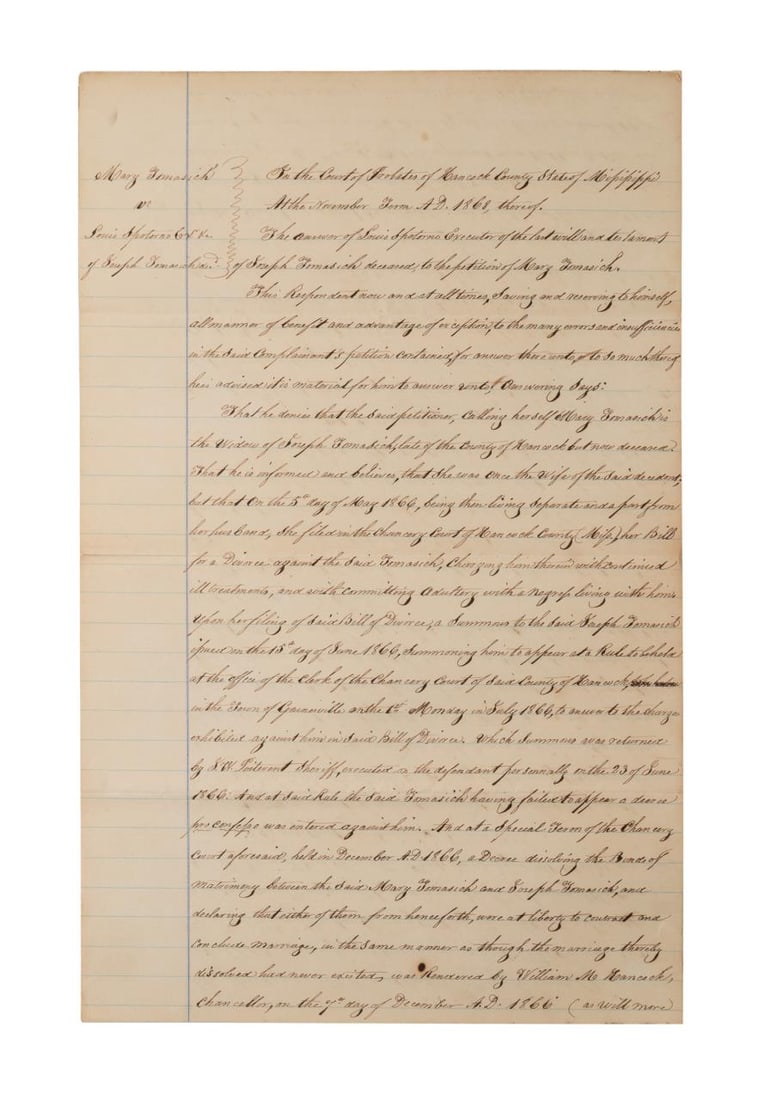 Mary Tomasich In the Court of Probates of Hancock County State of Missisippi
vs At the November Term A.D. 1868, thereof.
Louis Spotorno Exr &c. The answer of Louis Spotorno Executor of the last will and testament
of Joseph Tomasich decd. of Joseph Tomasich deceased, to the petition of Mary Tomasich.
This Respondent now and at all times, Saving and reserving to himself,
all manner of benefit and advantage of exception, to the many errors and insufficiencies
in the Said Complainant's petition contained, for answer thereunto, or to so much thereof
he is advised it is material for him to answer unto, Answering Says:
That he denies that the Said petitioner, Calling herself Mary Tomasich is
the Widow of Joseph Tomasich, late of the County of Hancock but now deceased.
That he is informed and believes, that She was once the Wife of the Said decedent,
but that On the 5th day of May 1866, being then living Seperate and apart from
her husband, She filed in the Chancery Court of Hancock County (Miss.) her Bill
for a Divorce against the Said Tomasich, Charging him therein with continued
ill treatments, and with committing Adultery with a negress living with him.
Upon her filing of Said Bill of Divorce, a Summons to the Said Joseph Tomasich
issued on the 15th day of June 1866, Summoning him to appear at a Rule to be held
at the office of the Clerk of the Chancery Court of Said County of Hancock,
in the Town of Gainesville on the 1st Monday in July 1866, to answer to the charge
exhibited against him in Said Bill of Divorce. Which Summons was returned
by Poitevent Sheriff, executed on the defendant personnally on the 23 of June
1866: And at Said Rule the Said Tomasich having failed to appear a decree
pro confesso was entered against him. And at a Special Term of the Chancery
Court aforesaid, held in December A.D. 1866, a Decree dissolving the Bonds of
Matrimony between the Said Mary Tomasich and Joseph Tomasich, and
declaring that either of them from henceforth, were at liberty to contract and
conclude marriage, in the Same manner as though the marriage thereby
dissolved had never existed, was Rendered by William M. Hancock,
Chancellor, on the 7th day of December A.D. 1866 (as will more